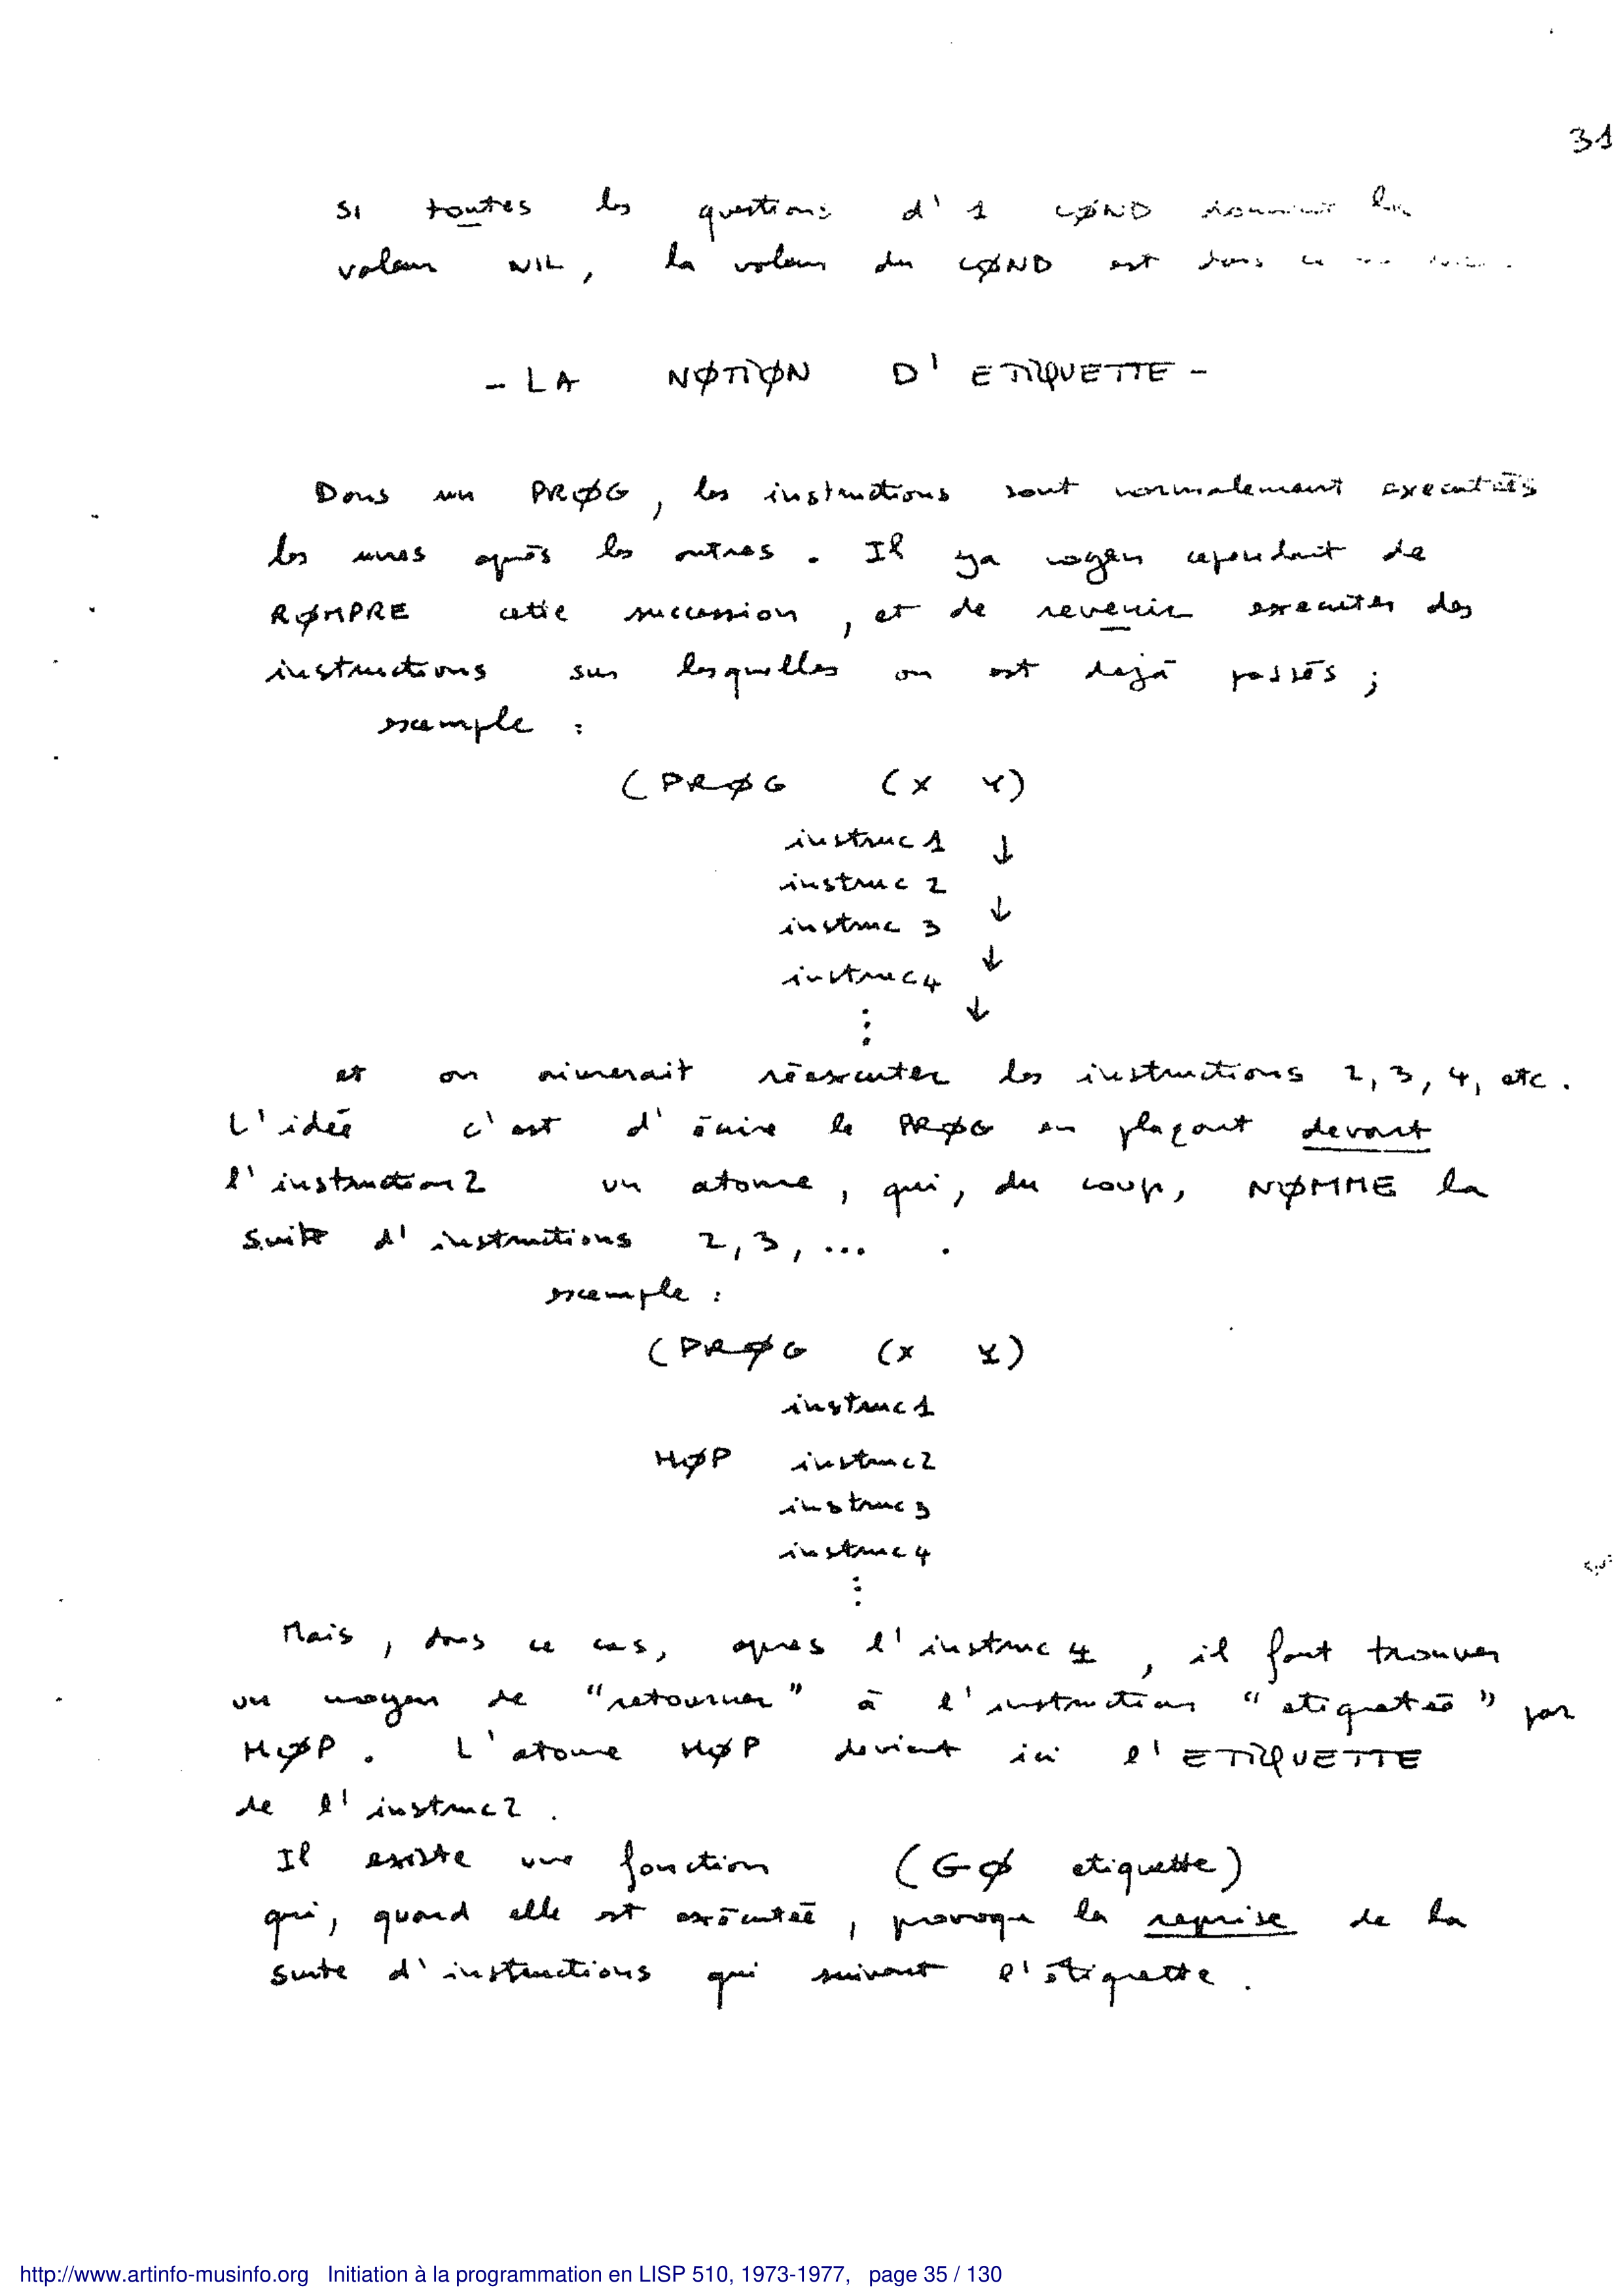 31
Si toutes les questions d'1 CØND donnent la
valeur NIL, la valeur du CØND est dans ce
- LA NØTIØN D'ETIQUETTE -
Dans un PRØG, les instructions sont normalement executées
les unes après les autres. Il y a moyen cependant de
RØMPRE cette succession, et de revenir executer des
instructions sur lesquelles on est dejà passés ;
exemple :
(PRØG (X Y)
instruc 1 ↓
instruc 2
instruc 3 ↓
instruc 4 ↓
⋮ ↓
et on aimerait réexecuter les instructions 2, 3, 4, etc.
L'idée c'est d'écrire le PRØG en plaçant devant
l'instruction 2 un atome, qui, du coup, NØMME la
suite d'instructions 2, 3, ... .
exemple :
(PRØG (X Y)
instruc 1
HØP instruc 2
instruc 3
instruc 4
⋮
Mais, dans ce cas, apres l'instruc 4, il faut trouver
un moyen de "retourner" à l'instruction "etiquetée" par
HØP. L'atome HØP devient ici l'ETIQUETTE
de l'instruc 2.
Il existe une fonction (GØ etiquette)
qui, quand elle est exécutée, provoque la reprise de la
suite d'instructions qui suivent l'étiquette.
http://www.artinfo-musinfo.org Initiation à la programmation en LISP 510, 1973-1977, page 35 / 130